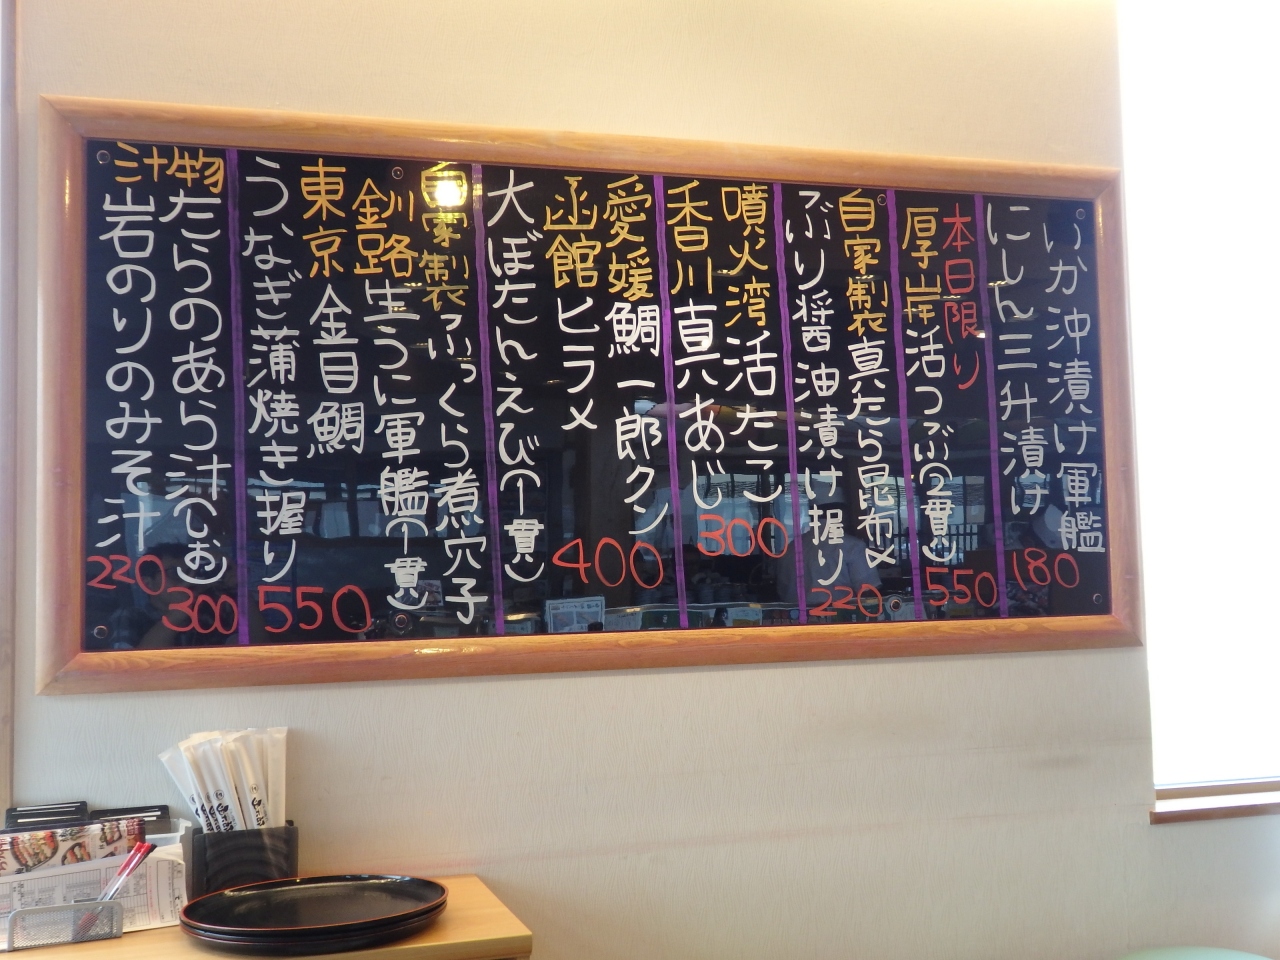 いか沖漬け軍艦
にしん三升漬け
180
本日限り
厚岸活つぶ(2貫)
550
自家製真たら昆布〆
ぶり醤油漬け握り
220
噴火湾活たこ
香川真あじ
300
愛媛鯛一郎クン
函館ヒラメ
400
大ぼたんえび(1貫)
自家製ふっくら煮穴子
釧路生うに軍艦(1貫)
東京金目鯛
うなぎ蒲焼き握り
550
汁物
たらのあら汁(しお)
300
岩のりのみそ汁
220